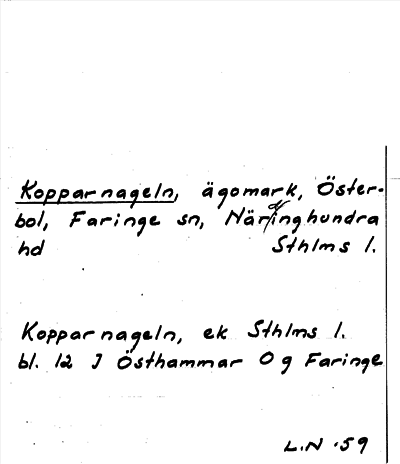 Kopparnageln, ägomark, Öster-
bol, Faringe sn, Närdinghundra
hd Sthlms l.
Kopparnageln, ek Sthlms l.
bl. 12 J Östhammar O g Faringe
L.N -59